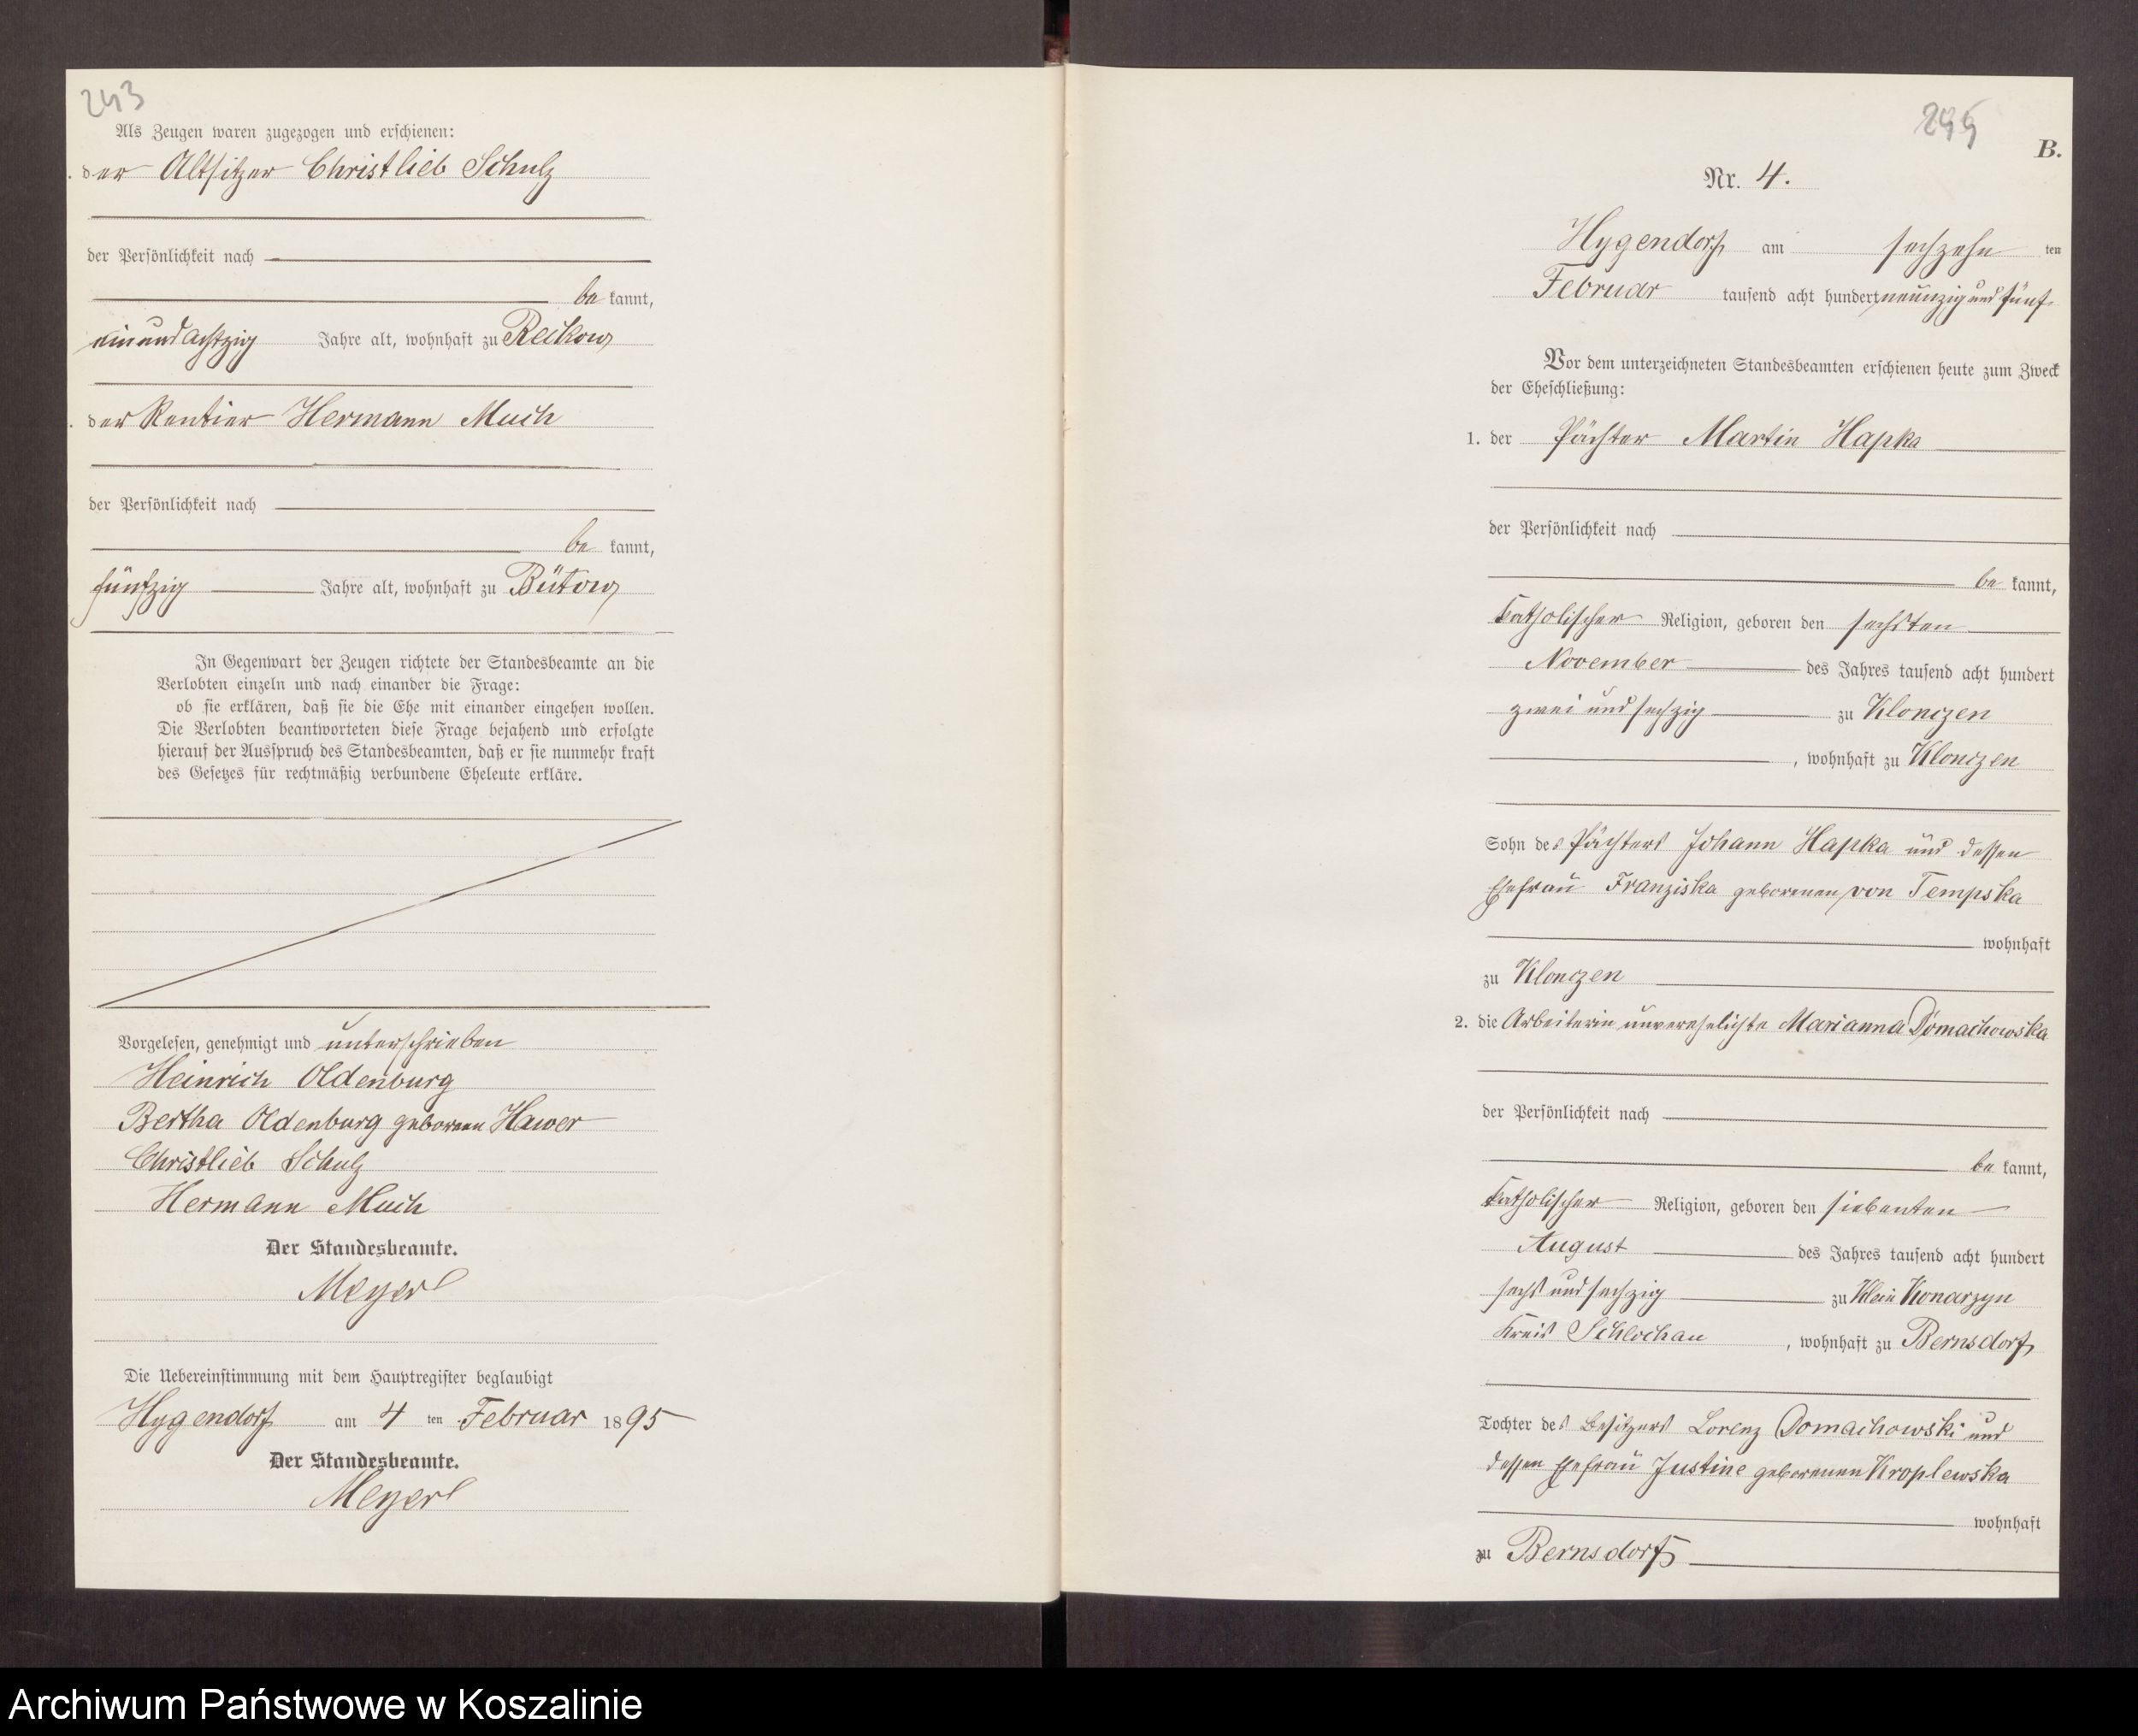 243
Als Zeugen waren zugezogen und erschienen:
. der Altsitzer Christlieb Schulz
der Persönlichkeit nach
be kannt,
einundachtzig Jahre alt, wohnhaft zu Reckow
. der Rentier Hermann Much
der Persönlichkeit nach
be kannt,
fünfzig Jahre alt, wohnhaft zu Bütow
In Gegenwart der Zeugen richtete der Standesbeamte an die
Verlobten einzeln und nach einander die Frage:
ob sie erklären, daß sie die Ehe mit einander eingehen wollen.
Die Verlobten beantworteten diese Frage bejahend und erfolgte
hierauf der Ausspruch des Standesbeamten, daß er sie nunmehr kraft
des Gesetzes für rechtmäßig verbundene Eheleute erkläre.
Vorgelesen, genehmigt und unterschrieben
Heinrich Oldenburg
Bertha Oldenburg geborene Hawer
Christlieb Schulz
Hermann Much
Der Standesbeamte.
Meyer
Die Uebereinstimmung mit dem Hauptregister beglaubigt
Hygendorf am 4 ten Februar 1895
Der Standesbeamte.
Meyer
244
B.
Nr. 4.
Hygendorf am sechzehn ten
Februar tausend acht hundert neunzig und fünf.
Vor dem unterzeichneten Standesbeamten erschienen heute zum Zweck
der Eheschließung:
1. der Pächter Martin Hapka
der Persönlichkeit nach
be kannt,
katholischer Religion, geboren den sechsten
November des Jahres tausend acht hundert
zwei und sechzig zu Klonczen
, wohnhaft zu Klonczen
Sohn des Pächters Johann Hapka und dessen
Ehefrau Franziska geborenen von Tempska
wohnhaft
zu Klonczen
2. die Arbeiterin unverehelichte Marianna Domachowska
der Persönlichkeit nach
be kannt,
katholischer Religion, geboren den siebenten
August des Jahres tausend acht hundert
sechs und sechzig zu Klein Konarzyn
Kreis Schlochau , wohnhaft zu Bernsdorf
Tochter des Besitzers Lorenz Domachowski und
dessen Ehefrau Justine geborenen Kroplewska
wohnhaft
zu Bernsdorf
Archiwum Państwowe w Koszalinie